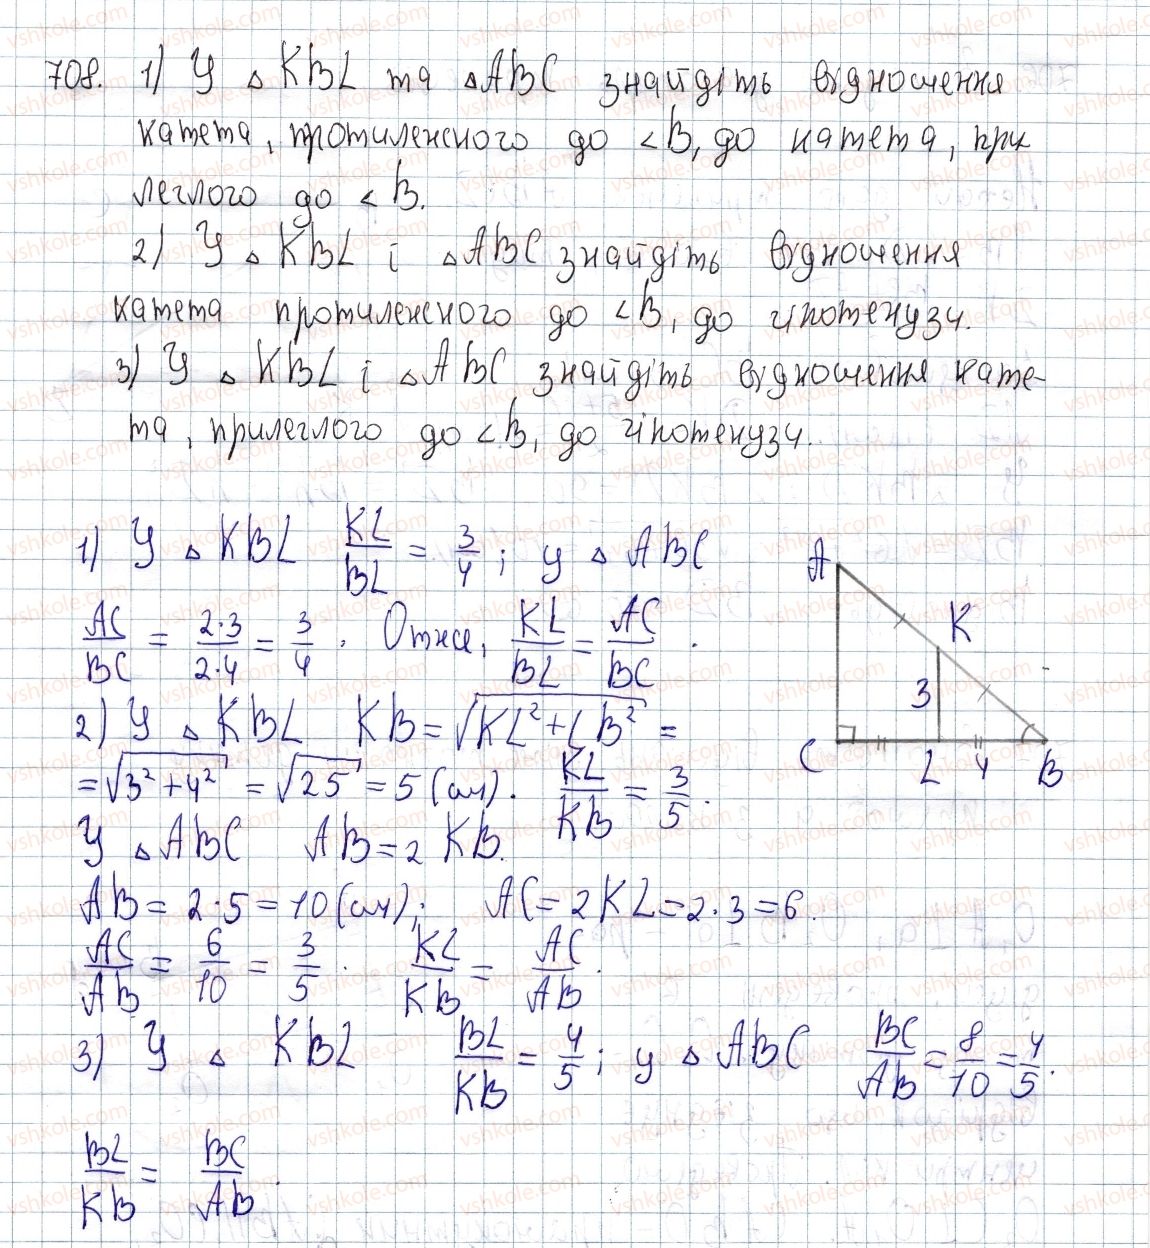 708. 1) У △ KBL та △ABC знайдіть відношення
катета, протилежного до <B, до катета, при
леглого до <B.
2) У △ KBL і △ABC знайдіть відношення
катета протилежного до <B, до гіпотенузи.
3) У △ KBL і △ABC знайдіть відношення кате-
та, прилеглого до <B, до гіпотенузи.
1) У △ KBL KL/BL = 3/4; у △ ABC
AC/BC = 2·3/2·4 = 3/4. Отже, KL/BL = AC/BC.
2) У △ KBL KB = √KL²+LB² =
= √3²+4² = √25 = 5 (см). KL/KB = 3/5.
У △ABC AB = 2 KB.
AB = 2·5 = 10 (см); AC = 2KL = 2·3 = 6
AC/AB = 6/10 = 3/5. KL/KB = AC/AB.
3) У △ KBL BL/KB = 4/5; у △ ABC BC/AB = 8/10 = 4/5.
BL/KB = BC/AB.
A
K
3
C L 4 B
vshkole.com